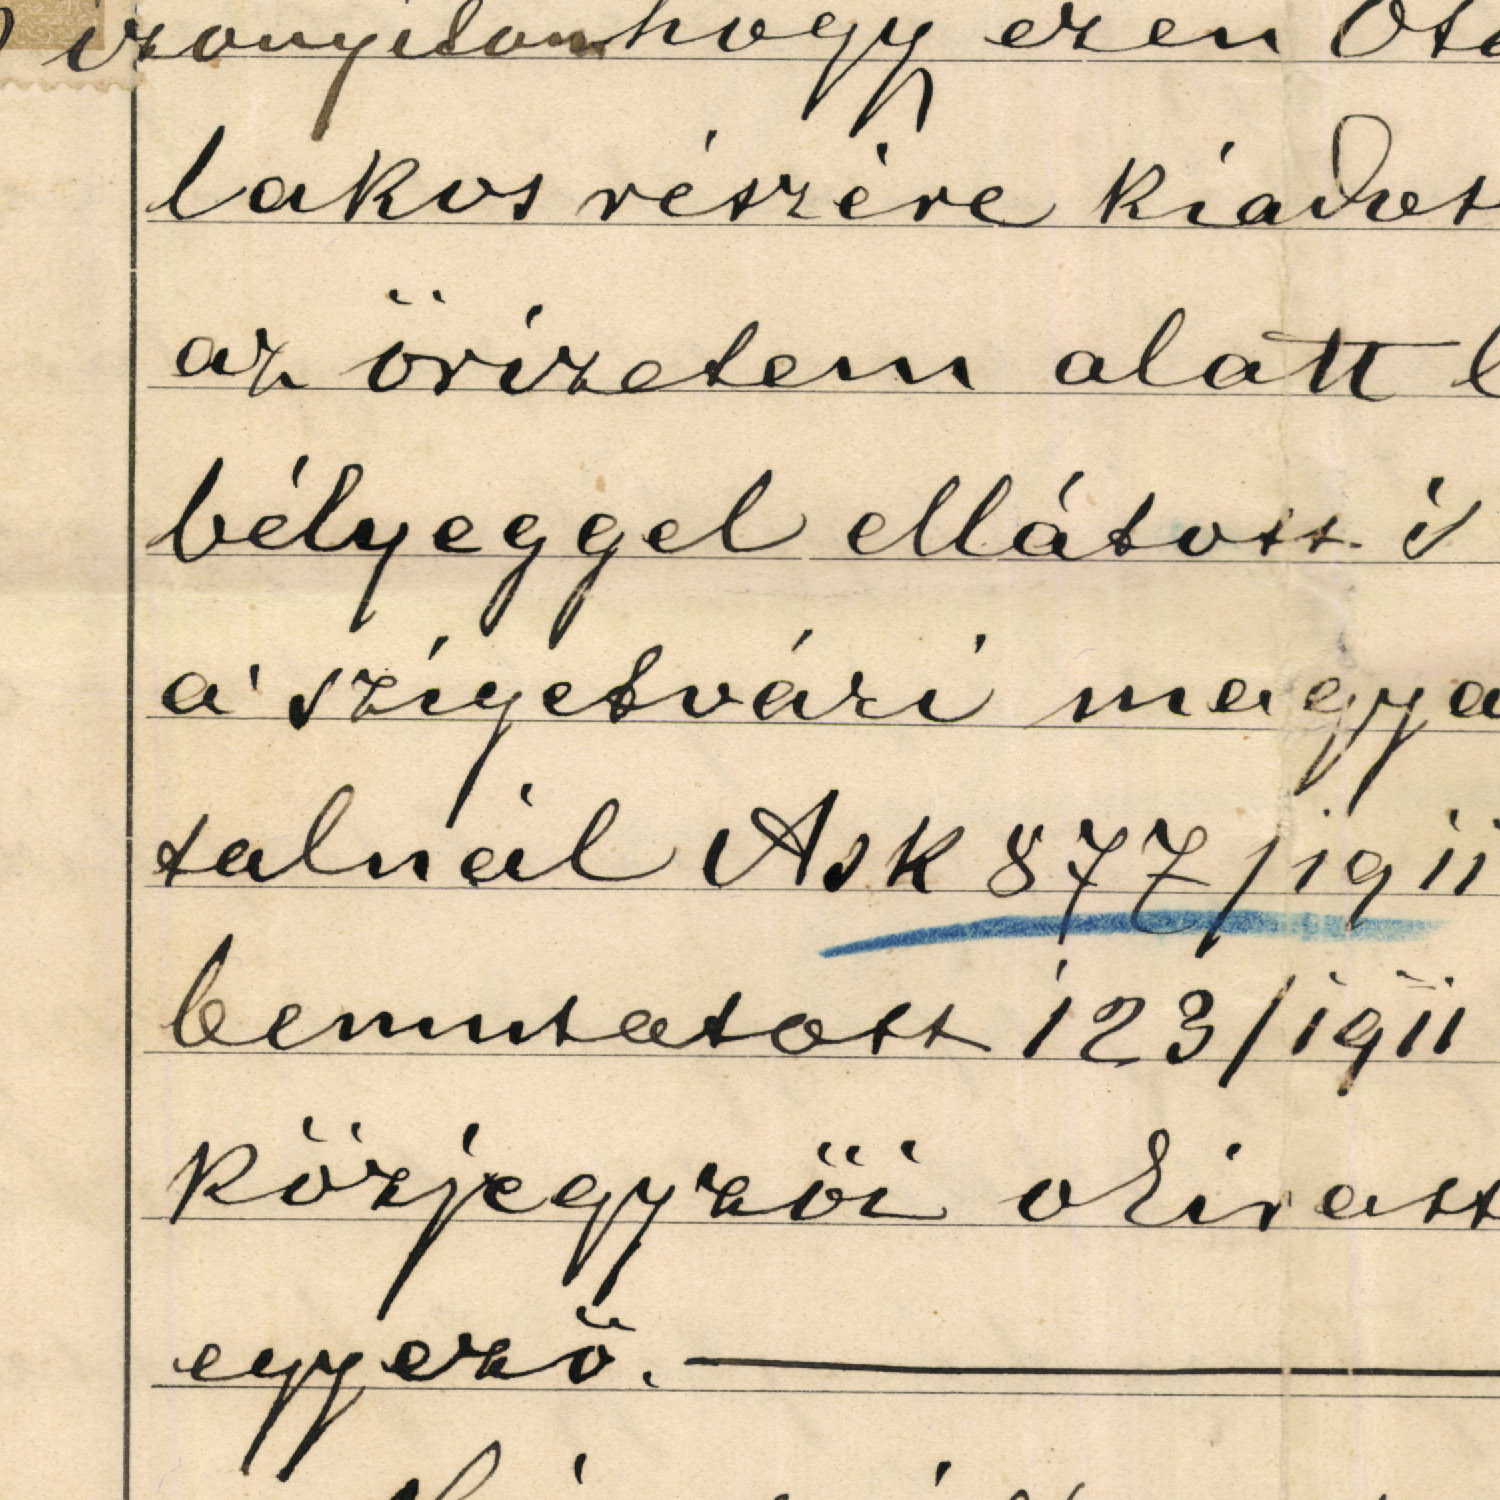 izonyitom hogy ezen
lakos részére kiadot
az örizetem alatt
bélyeggel ellátott
a' szigetvári magya
talnál Ask 877/1911
bemutatott 123/1911
közjegyzöi okiratt
egyezö.